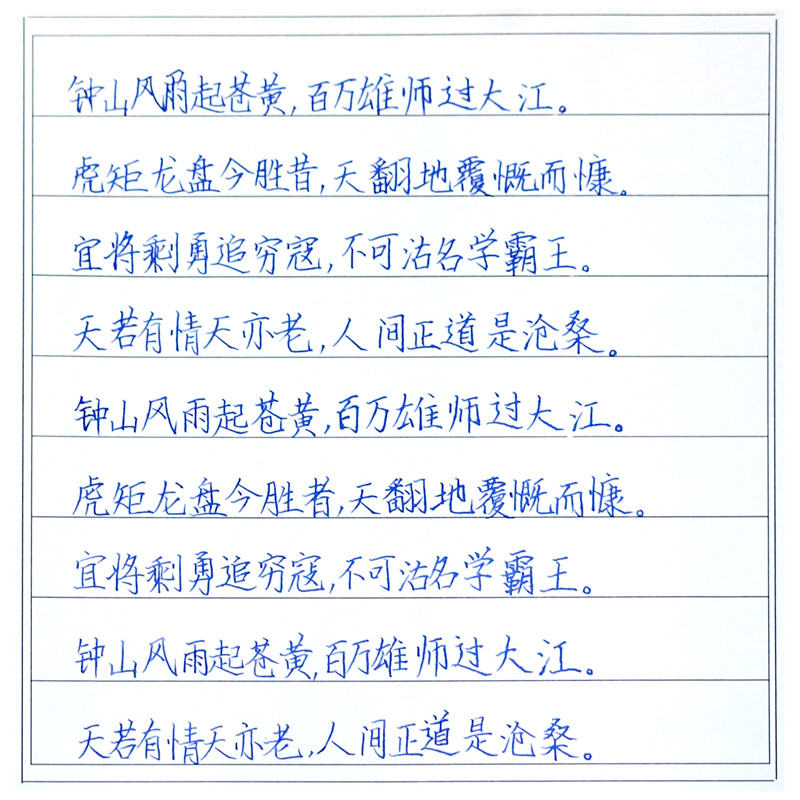 钟山风雨起苍黄,百万雄师过大江。
虎矩龙盘今胜昔,天翻地覆慨而慷。
宜将剩勇追穷寇,不可沽名学霸王。
天若有情天亦老,人间正道是沧桑。
钟山风雨起苍黄,百万雄师过大江。
虎矩龙盘今胜者,天翻地覆慨而慷。
宜将剩勇追穷寇,不可沽名学霸王。
钟山风雨起苍黄,百万雄师过大江。
天若有情天亦老,人间正道是沧桑。